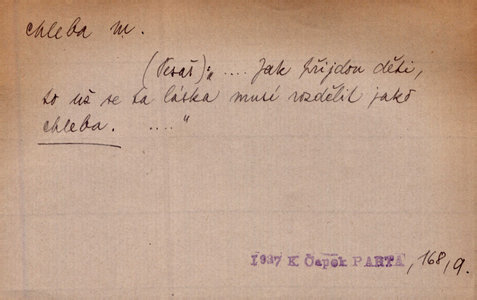 chleba m.
(Pesař): „.... Jak přijdou děti,
to už se ta láska musí rozdělit jako
chleba. ...."
1937 K Čapek PARTA, 168, 9.